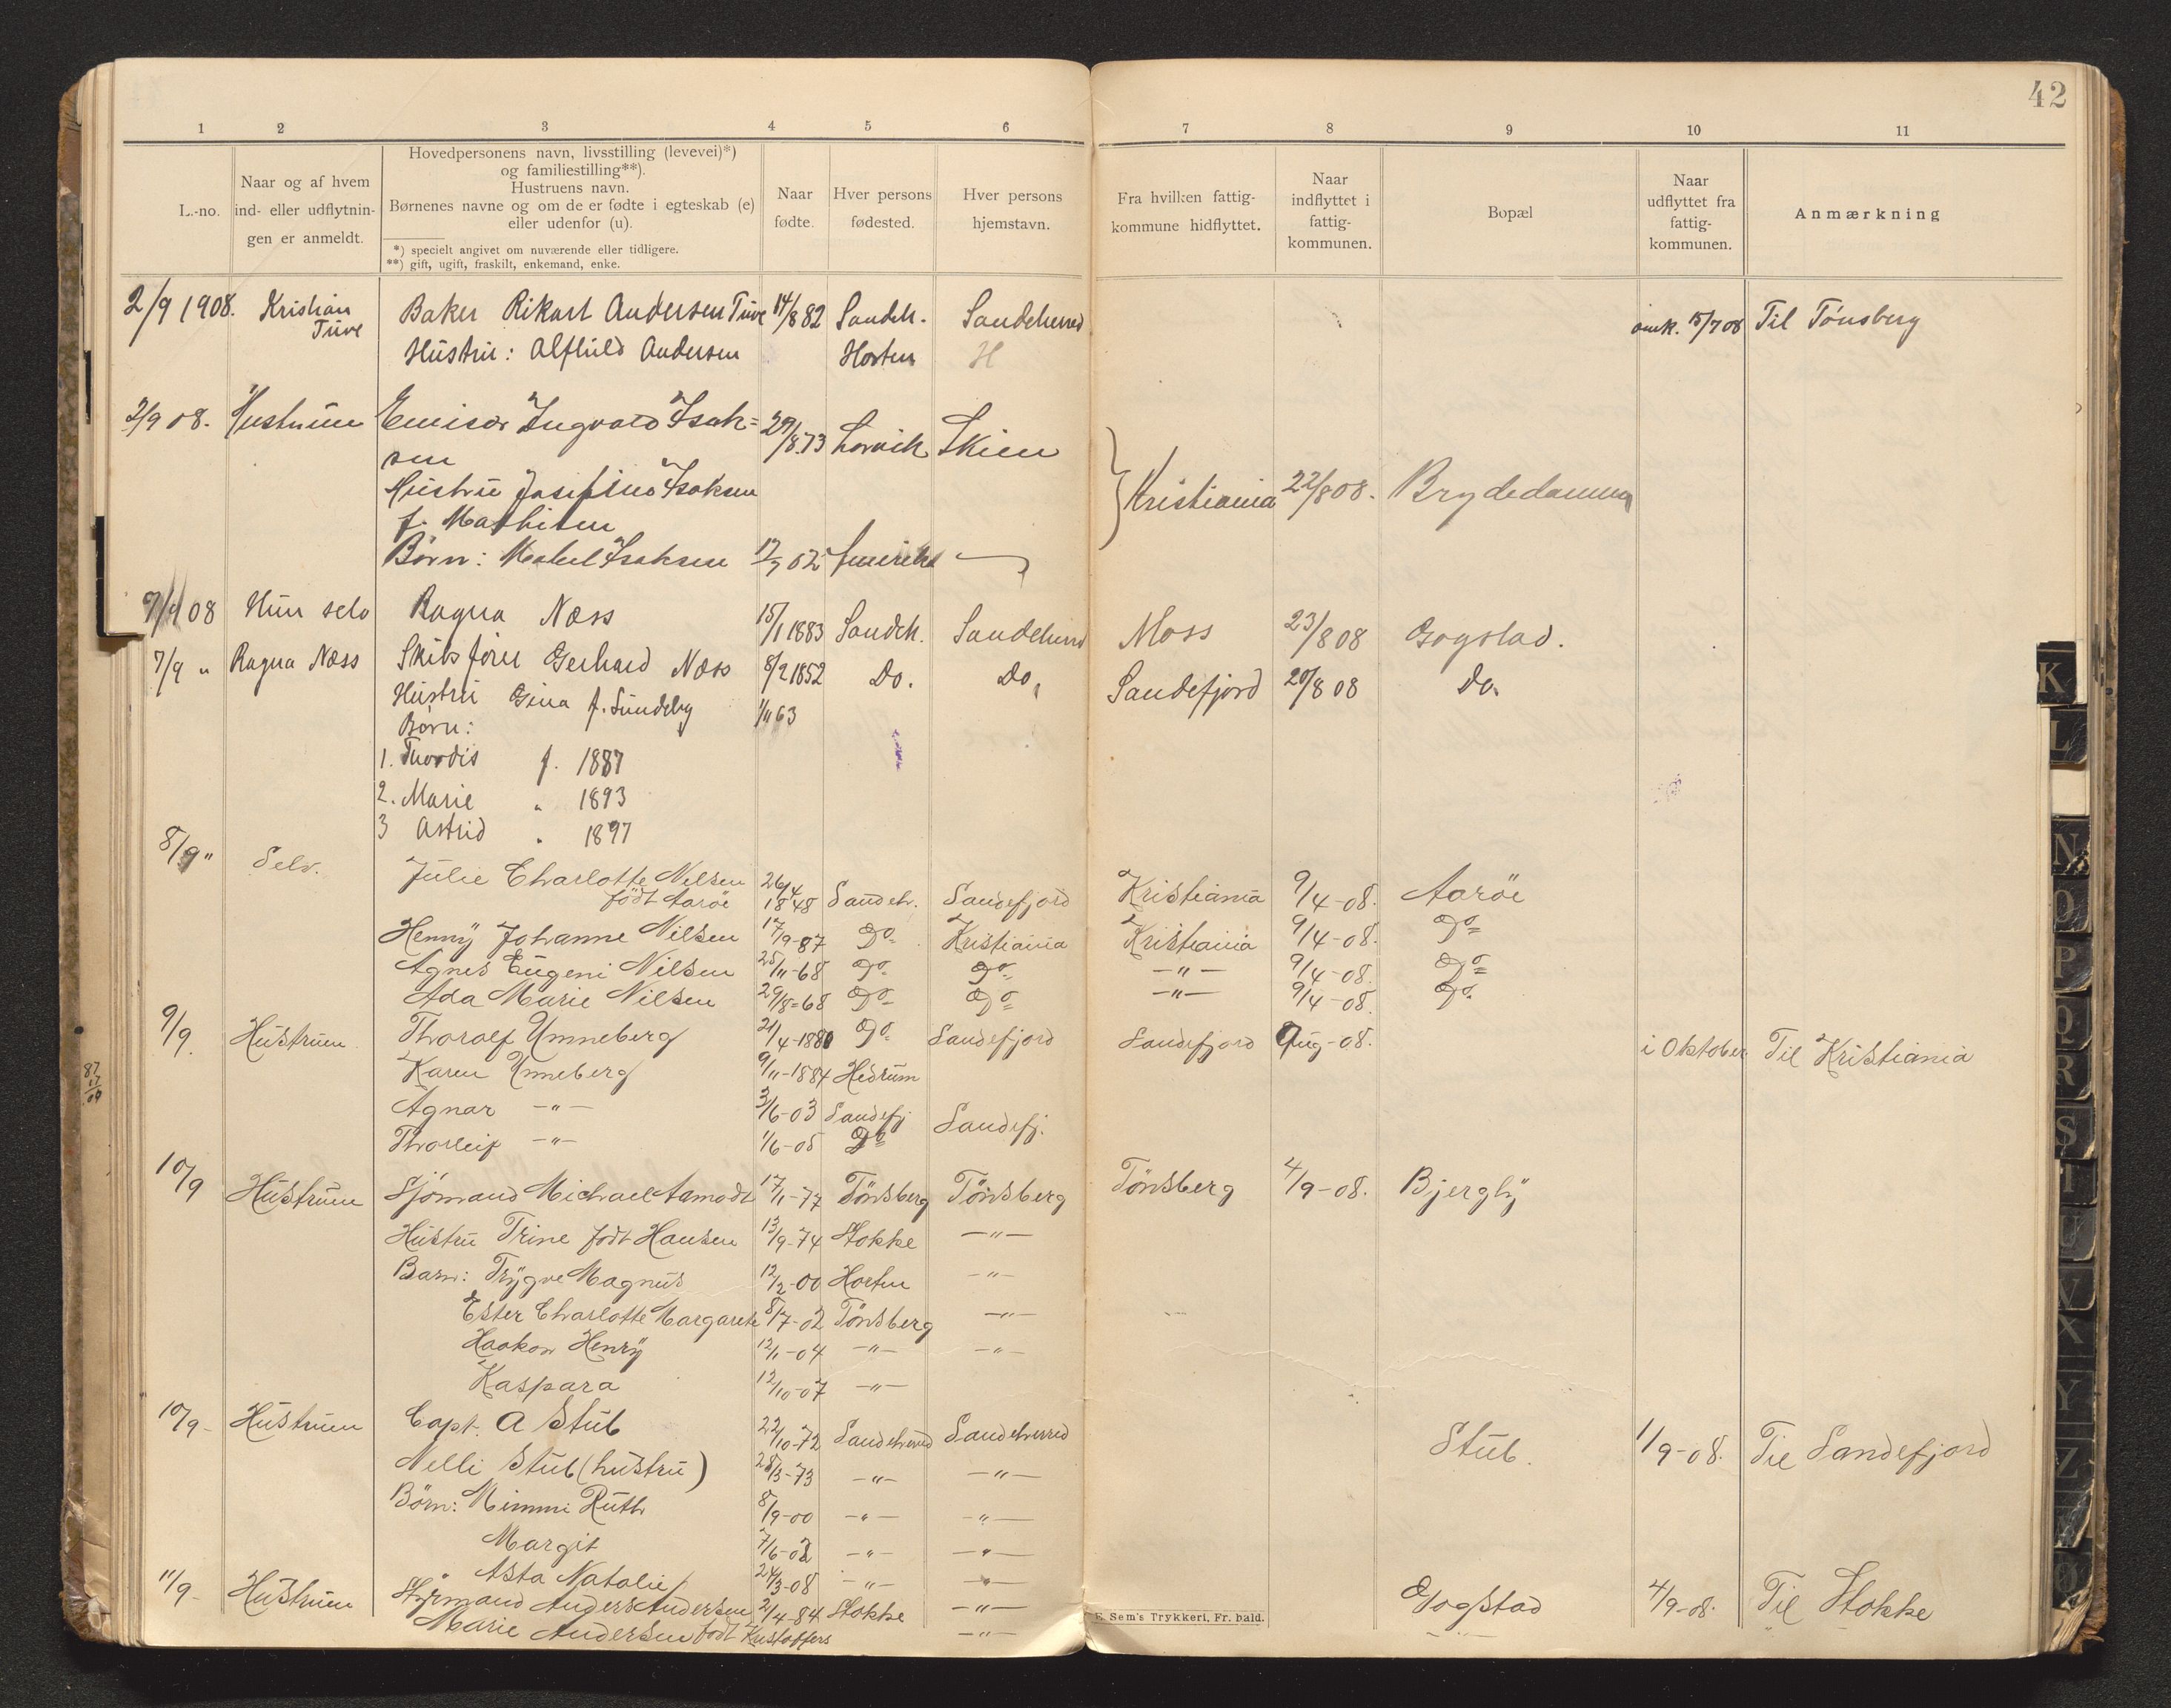 42
1 2 3 4 5 6 7 8 9 10 11
L.-no.
Naar og af hvem
ind- eller udflytnin-
gen er anmeldt.
Hovedpersonens navn, livsstilling (levevei)*)
og familiestilling**).
Hustruens navn.
Børnenes navne og om de er fødte i egteskab (e)
eller udenfor (u).
*) specielt angivet om nuværende eller tidligere.
**) gift, ugift, fraskilt, enkemand, enke.
Naar
fødte.
Hver persons
fødested.
Hver persons
hjemstavn.
Fra hvilken fattig-
kommune hidflyttet.
Naar
indflyttet i
fattig-
kommunen.
Bopæl
Naar
udflyttet fra
fattig-
kommunen.
Anmærkning
2/9 1908. Kristian Tuve Baker Rikart Andersen Tuve 14/8 82 Sandeh. Sandeherred omk. 15/7 08 Til Tönsberg
Hustru: Alfhild Andersen Horten H
2/9 08. Hustruen Emisær Ingvald Isak= 29/8.73 Larvik Skien
sen
Hustru Josefine Isaksen Kristiania 22/8 08. Brydedamma
f. Mathisen
Børn: Mabel Isaksen 17/7 02 Amerika
7/9 08 Hun selv Ragna Næss 15/1 1883 Sandeh. Sandeherred Moss 23/8 08 Gogstad.
7/9 " Ragna Næss Skibsfører Gerhard Næss 8/2 1852 Do. Do. Sandefjord 20/8 08 Do.
Hustru Gina f. Sundeby 1/11 63
Børn:
1. Thordis f. 1887
2. Marie " 1893
3 Astrid " 1897
8/9 " Selv. Julie Charlotte Nilsen 26/4 1848 Sandeh. Sandefjord Kristiania 9/4-08. Aaröe
födt Aaröe
Henny Johanne Nilsen 17/9-87 Do Kristiania Kristiania 9/4-08. Do
Agnes Eugeni Nilsen 25/11-68 Do Do -"- 9/4-08. Do
Ada Marie Nilsen 29/8=68 Do Do -"- 9/4-08. Do
9/9. Hustruen Thoralf Unneberg 21/4-1880 Do Sandefjord Sandefjord Aug-08. i Oktober Til Kristiania
Karen Unneberg 9/11-1884 Hedrum
Agnar -"- 3/6-03 Sandefj. Sandefj.
Thorleif -"- 1/6-05 Do
10/9 Hustruen Sjömand Michael Aamodt 17/11-77 Tönsberg Tönsberg Tönsberg 4/9-08. Bjergby
Hustru Trine födt Hansen 13/9-74 Stokke -"-
Barn: Trygve Magnus 12/2-00 Horten -"-
Ester Charlotte Margarete 8/7-02 Tönsberg -"-
Haakon Henry 12/11-04 -"- -"-
Kaspara 12/10-07 -"-
10/9- Hustruen Capt. A Stub 22/10-72 Sandeherred Sandeherred Stub. 1/9-08. Til Sandefjord
Nelli Stub (hustru) 28/3-73 -"- -"-
Börn: Mimmi Ruth 8/9-00 -"- -"-
Margit 7/6-02 -"- -"-
Asta Natalie 24/3-08 -"- -"-
11/9- Hustruen Styrmand Anders Andersen 2/4-84 Stokke -"- Gogstad 4/9-08. Til Stokke
Marie Andersen födt Kristoffers -"-
E. Sem's Trykkeri, Fr. hald.
87
17
09
K
L
N
O
P
Q
R
S
T
U
V
X
Y
Z
Æ
Ø